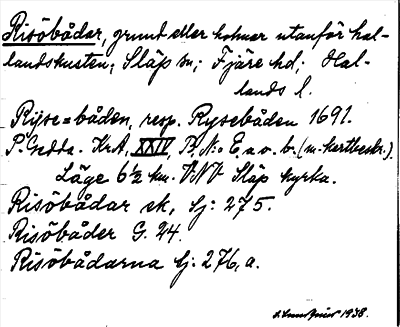 Risöbådar, grund eller holmar utanför hal-
landskusten; Släp sn; Fjäre hd; Hal-
lands l.
Ryse=båden, resp. Rysebåden 1691.
P. Gedda. KrA, XXIV, B, N:o E. a. o. b. (m. kartbeskr.).
Läge 6½ km. VNV Släp kyrka.
Risöbådar ek, Sj: 275.
Risöbåder G. 24.
Risöbådarna Sj: 276, a.
1938.